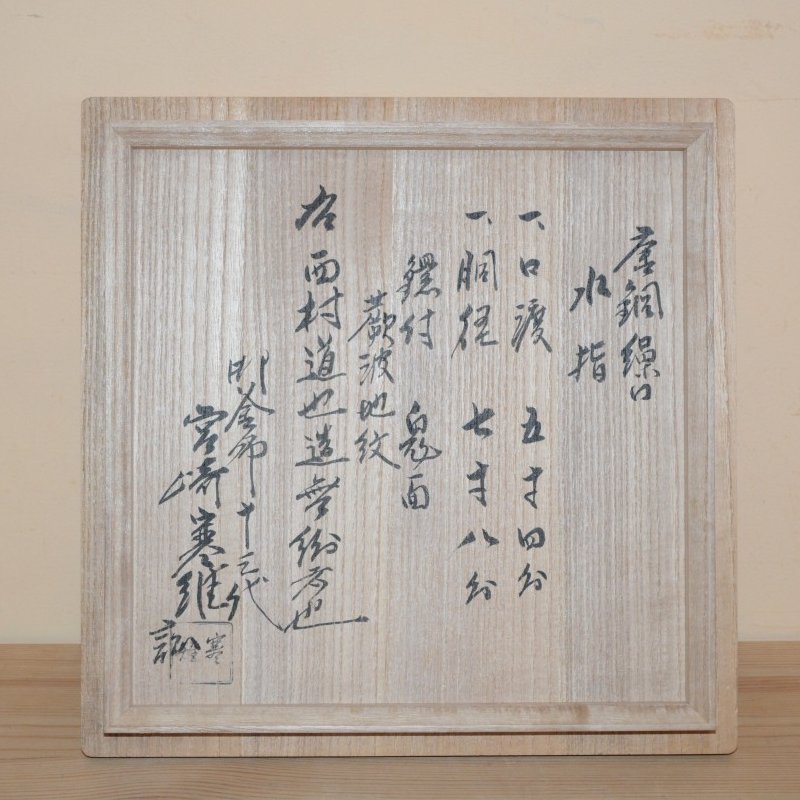 唐銅繰口
水指
一、口渡 五寸四分
一、胴径 七寸八分
鐶付 鬼面
蕨波地紋
右西村道也造無紛者也
御釜師十三代
宮崎寒雉